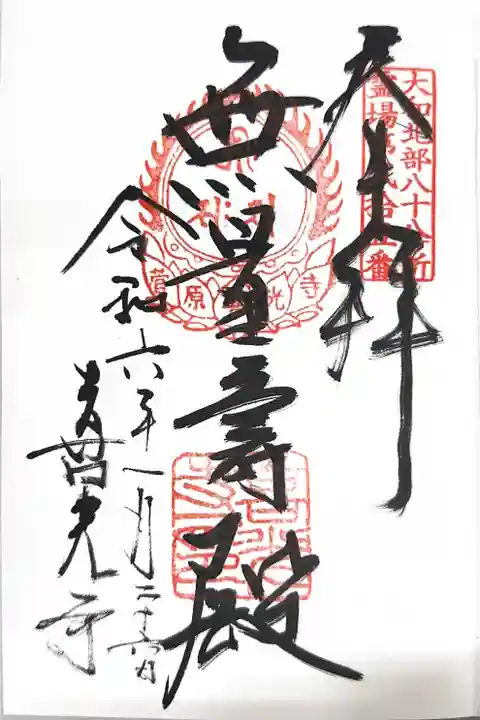 大和北部八十八ヶ所
霊場第弐拾番
奉拝
無量壽殿
菅原喜光寺
令和六年一月二十日
喜光寺